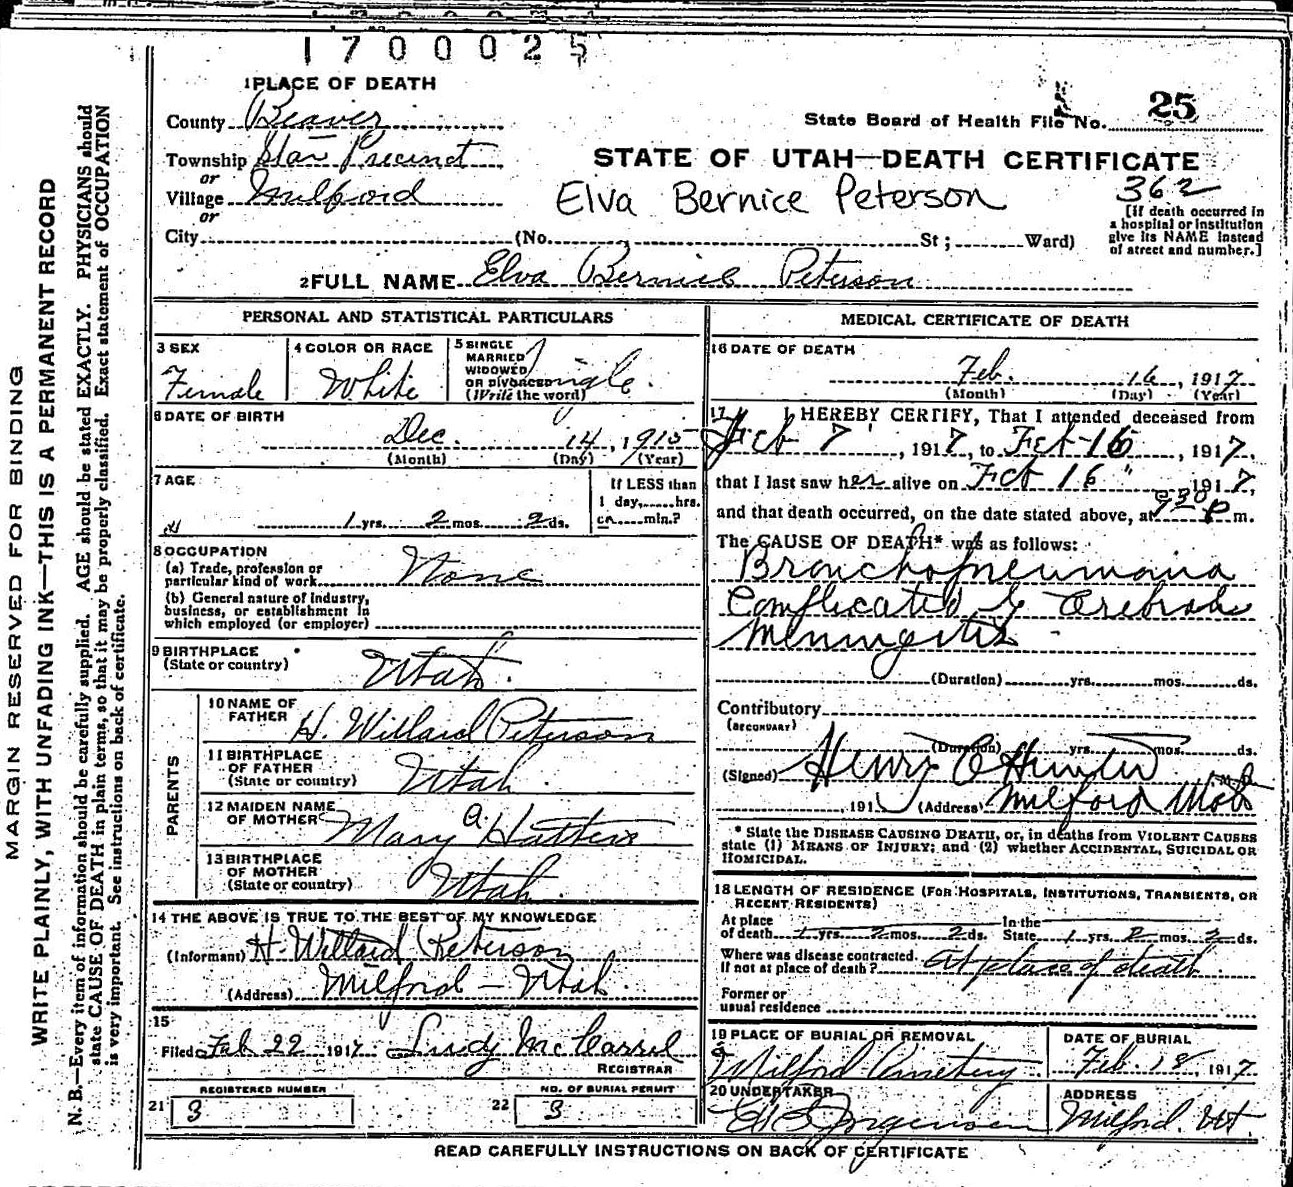 1700025
1 PLACE OF DEATH
County Beaver
Township Star Precinct
or
Village Milford
or
City (No. St; Ward)
State Board of Health File No. 25
STATE OF UTAH—DEATH CERTIFICATE
Elva Bernice Peterson
362
[If death occurred in
a hospital or institution
give its NAME instead
of street and number.]
2 FULL NAME Elva Bernice Peterson
MARGIN RESERVED FOR BINDING
WRITE PLAINLY, WITH UNFADING INK—THIS IS A PERMANENT RECORD
N. B.—Every item of information should be carefully supplied. AGE should be stated EXACTLY. PHYSICIANS should
state CAUSE OF DEATH in plain terms, so that it may be properly classified. Exact statement of OCCUPATION
is very important. See instructions on back of certificate.
PERSONAL AND STATISTICAL PARTICULARS
3 SEX
Female
4 COLOR OR RACE
White
5 SINGLE
MARRIED
WIDOWED
OR DIVORCED
(Write the word)
Single.
6 DATE OF BIRTH
Dec. 14, 1915
(Month) (Day) (Year)
7 AGE
1 yrs. 2 mos. 2 ds.
If LESS than
1 day, hrs.
or min.?
8 OCCUPATION
(a) Trade, profession or
particular kind of work None
(b) General nature of industry,
business, or establishment in
which employed (or employer)
9 BIRTHPLACE
(State or country)
Utah.
PARENTS
10 NAME OF
FATHER H. Willard Peterson
11 BIRTHPLACE
OF FATHER
(State or country) Utah.
12 MAIDEN NAME
OF MOTHER Mary A.
13 BIRTHPLACE
OF MOTHER
(State or country) Utah.
14 THE ABOVE IS TRUE TO THE BEST OF MY KNOWLEDGE
(Informant) H. Willard Peterson
(Address) Milford - Utah.
15
Filed Feb 22 1917
REGISTRAR
REGISTERED NUMBER
21 3
NO. OF BURIAL PERMIT
22 3
MEDICAL CERTIFICATE OF DEATH
16 DATE OF DEATH
Feb. 16, 1917
(Month) (Day) (Year)
17 I HEREBY CERTIFY, That I attended deceased from
Feb 7, 1917, to Feb 16, 1917,
that I last saw her alive on Feb 16", 1917,
and that death occurred, on the date stated above, at 930 P m.
The CAUSE OF DEATH* was as follows:
Bronchopneumonia
Complicated by Cerebral
Meningitis
(Duration) yrs. mos. ds.
Contributory
(SECONDARY)
(Duration) yrs. mos. ds.
(Signed) Henry C Hunter M.D.
, 191 (Address) Milford Utah
* State the DISEASE CAUSING DEATH, or, in deaths from VIOLENT CAUSES
state (1) MEANS OF INJURY; and (2) whether ACCIDENTAL, SUICIDAL OR
HOMICIDAL.
18 LENGTH OF RESIDENCE (FOR HOSPITALS, INSTITUTIONS, TRANSIENTS, OR
RECENT RESIDENTS)
At place In the
of death 1 yrs. 2 mos. 2 ds. State 1 yrs. 2 mos. 2 ds.
Where was disease contracted.
If not at place of death? At place of death.
Former or
usual residence
19 PLACE OF BURIAL OR REMOVAL
Milford Cemetery
DATE OF BURIAL
Feb. 18, 1917.
20 UNDERTAKER
Jorgensen
ADDRESS
Milford. Ut.
READ CAREFULLY INSTRUCTIONS ON BACK OF CERTIFICATE